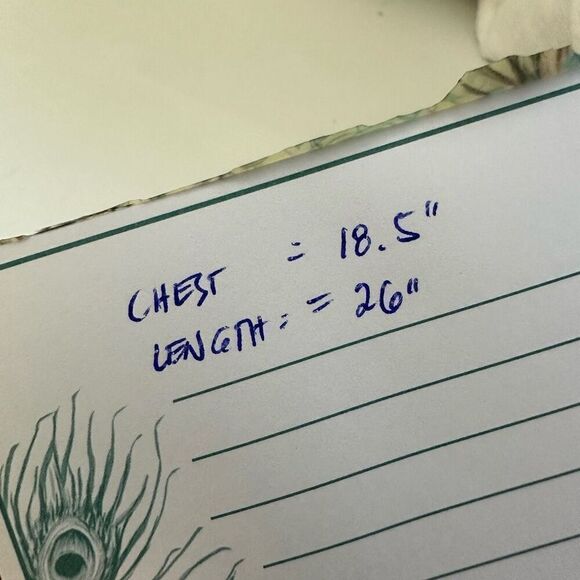 CHEST = 18.5"
LENGTH: = 26"